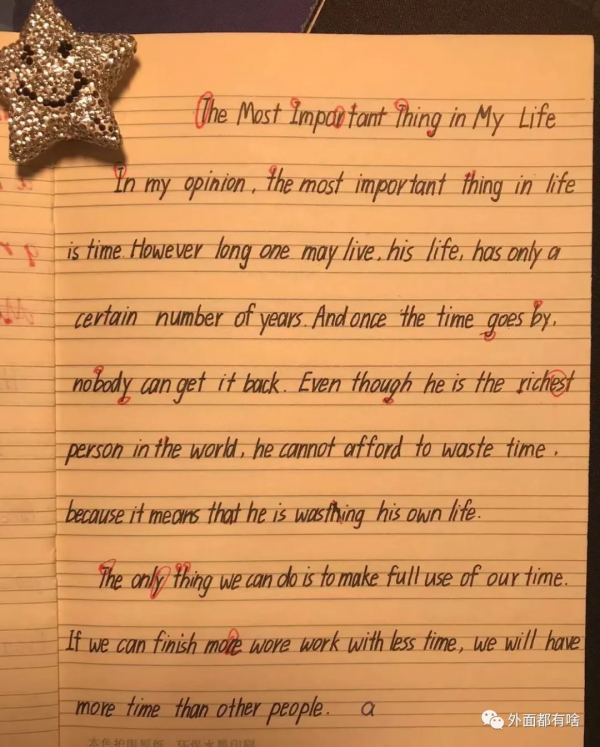 The Most Important Thing in My Life
In my opinion, the most important thing in life
is time. However long one may live, his life, has only a
certain number of years. And once the time goes by,
nobody can get it back. Even though he is the richest
person in the world, he cannot afford to waste time,
because it means that he is wasthing his own life.
The only thing we can do is to make full use of our time.
If we can finish more wore work with less time, we will have
more time than other people. a
外面都有啥